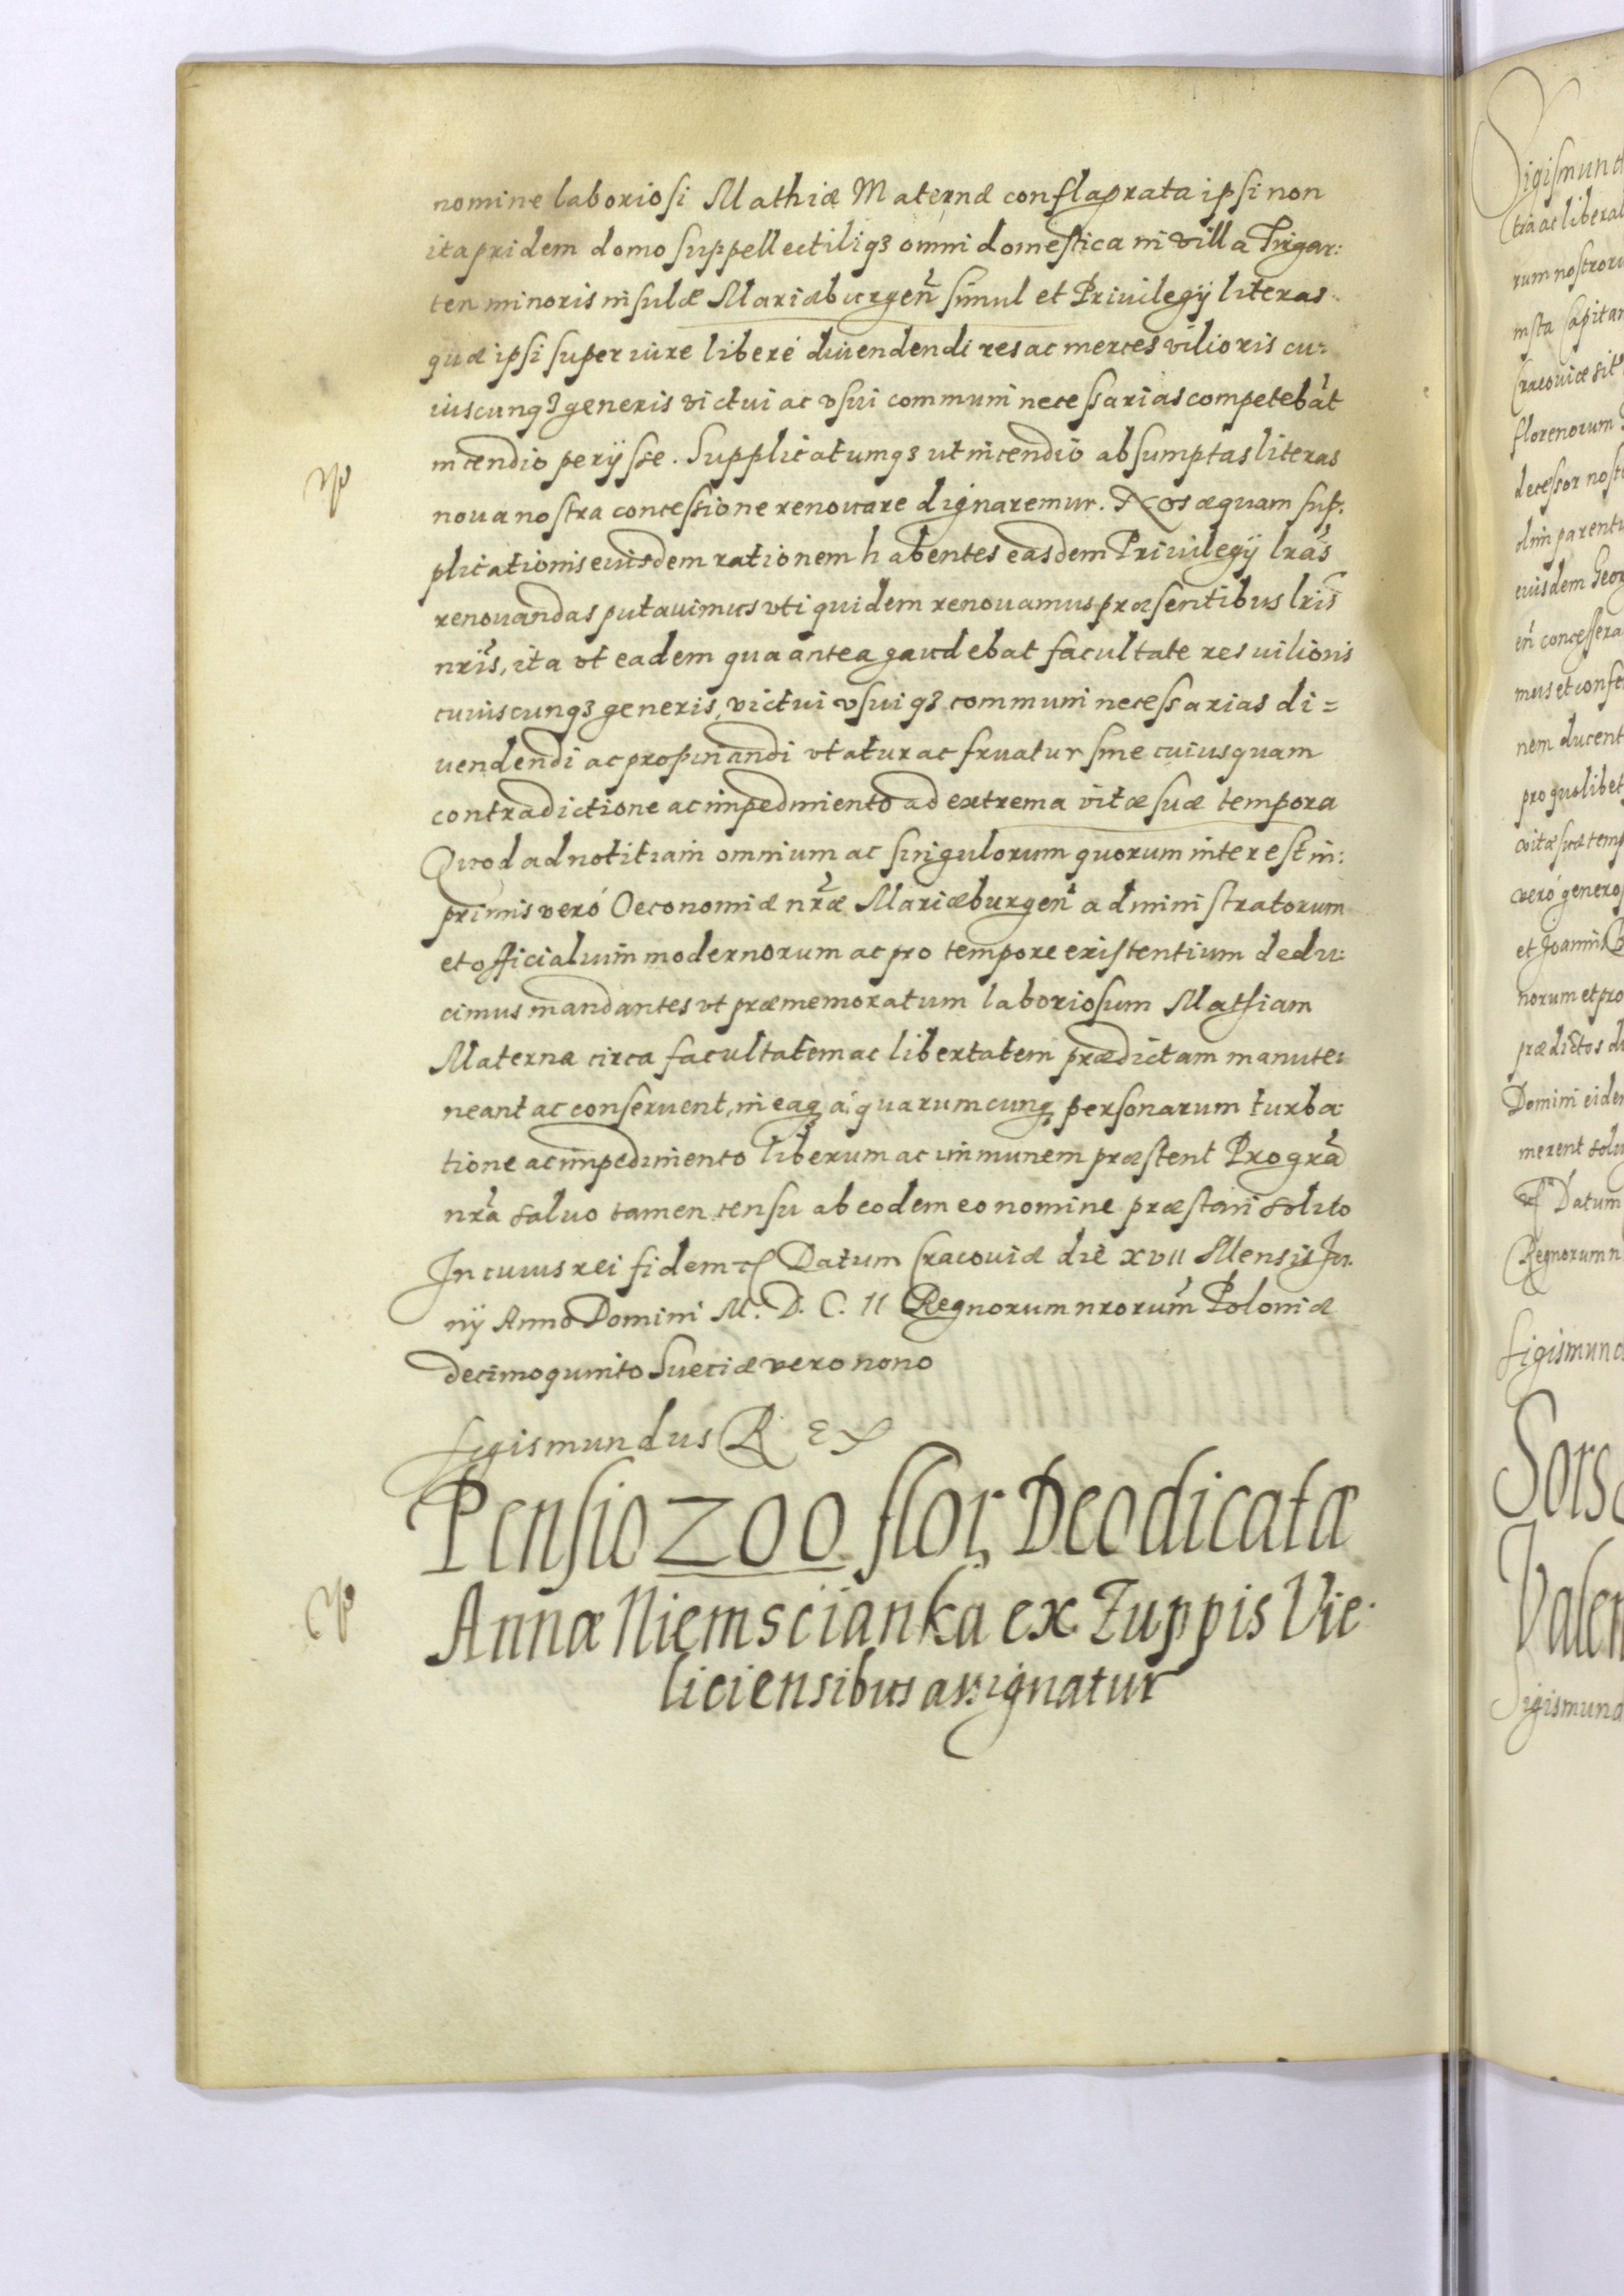 nomine laboriosi Mathiæ Maternæ conflagrata ipsi non
ita pridem domo suppellectiliq3 omni domestica in villa Tirgar:
ten minoris insulæ Mariæburgen̄ simul et Priuilegÿ literas
quæ ipsi super iure liberé diuendendi res ac merces vilioris cu:
iuscunq3 generis victui ac vsui communi necessarias competebāt
incendio perÿsse. Supplicatumq3 ut incendio absumptas literas
noua nostra concessione renouare dignaremur. Nos æquam sup:
plicationis eiusdem rationem habentes easdem Priuilegÿ lrās
renouandas putauimus vti quidem renouamus præsentibus lrīs
nrīs, ita vt eadem qua antea gaudebat facultate res uilioris
cuiuscunq3 generis, victui vsuiq3 communi necessarias di=
uendendi ac propinandi vtatur ac fruatur sine cuiusquam
contradictione ac impedimento ad extrema vitæ suæ tempora
Quod ad notitiam omnium ac singulorum quorum interest in:
primis veró Oeconomiæ nrǣ Mariæburgen̄ administratorum
et officialium modernorum ac pro tempore existentium dedu:
cimus mandantes vt præmemoratum laboriosum Mathiam
Materna circa facultatem ac libertatem prædictam manute:
neant ac conseruent, in eaq á quarumcunq personarum turba:
tione ac impedimento liberum ac immunem præstent Pro grā
nrā saluo tamen censu ab eodem eo nomine præstari solito
In cuius rei fidem etc Datum Cracouiæ die XVII Mensis Ju:
nÿ Anno Domini M. D. C. II Regnorum nrorum̄ Poloniæ
decimoquinto Sueciæ vero nono
Sigismundus Rex
Pensio 200 flor, Deodicatæ
Annæ Niemscianka ex Zuppis Vie:
liciensibus assignatur